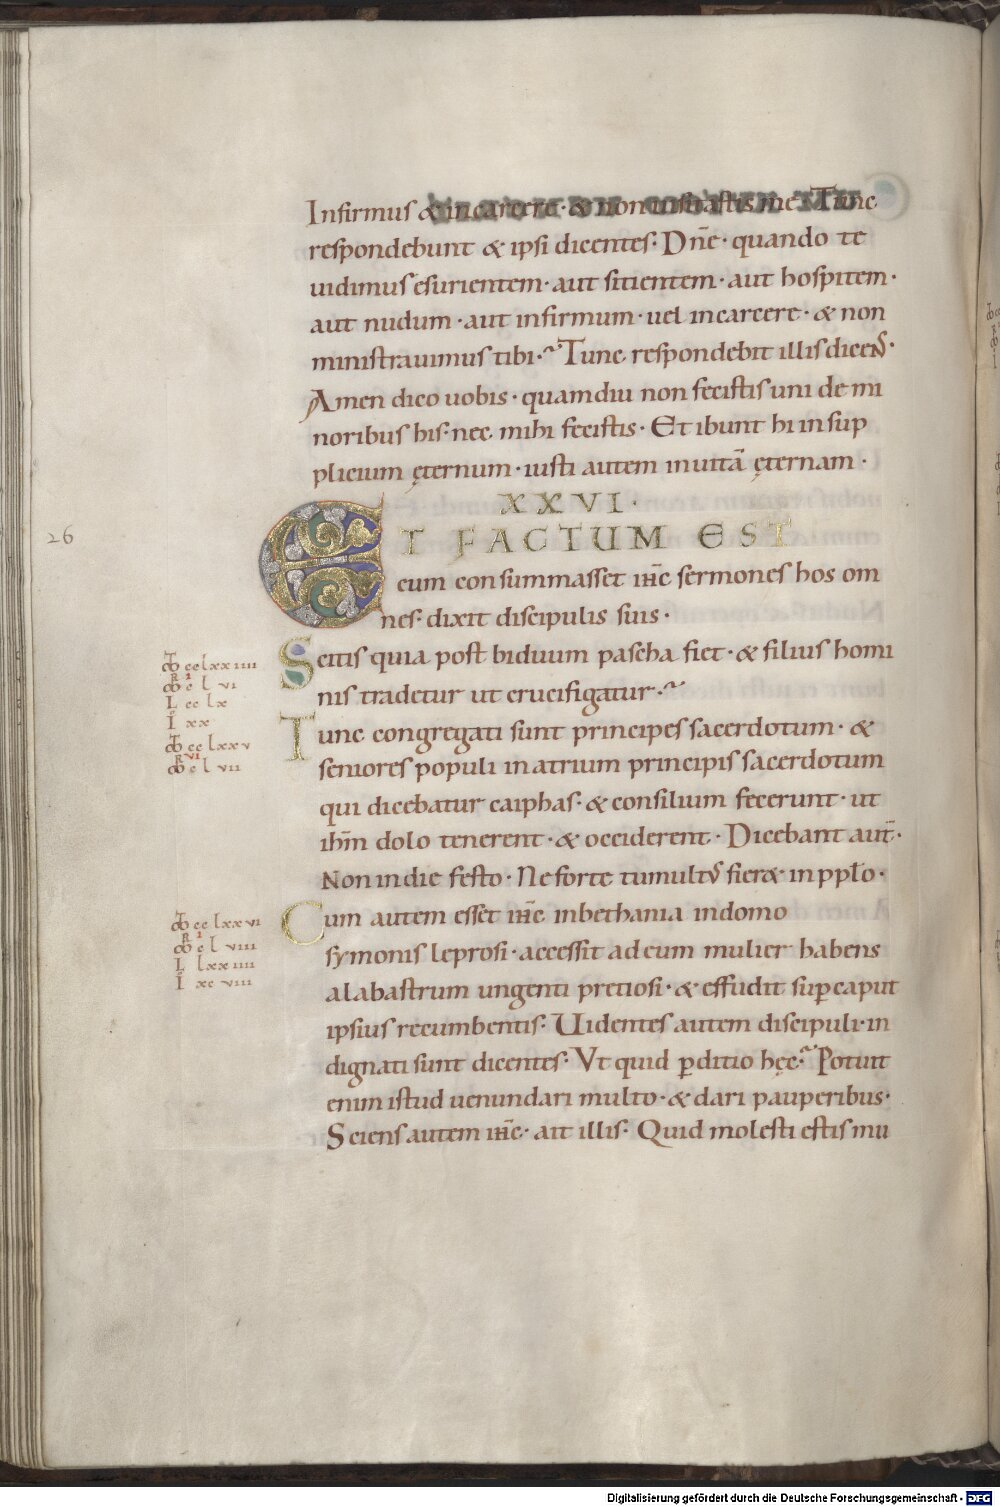 Infirmus & incarcere · & non uisitastis me · Tunc
respondebunt & ipsi dicentes · Dn̄e · quando te
uidimus esurientem · aut sitientem · aut hospitem ·
aut nudum · aut infirmum · uel incarcere · & non
ministrauimus tibi · Tunc respondebit illis dicens ·
Amen dico uobis · quamdiu non fecistis uni de mi
noribus his · nec mihi fecistis · Et ibunt hi in sup
plicium ęternum · iusti autem inuitā ęternam ·
XXVI ·
ET FACTUM EST
cum consummasset ih̄c sermones hos om
nes · dixit discipulis suis ·
26
Scitis quia post biduum pascha fiet · & filius homi
nis tradetur ut crucifigatur ·
Tunc congregati sunt principes sacerdotum · &
seniores populi inatrium principis sacerdotum
qui dicebatur caiphas · & consilium fecerunt · ut
ihm̄ dolo tenerent · & occiderent · Dicebant aut̄ ·
Non indie festo · Ne forte tumultus fieret in pplo ·
cc lxx iiii
c l vi
L cc lx
I xx
cc lxx v
c l vii
Cum autem esset ih̄c inbethania indomo
symonis leprosi · accessit adeum mulier habens
alabastrum ungenti pretiosi · & effudit sup caput
ipsius recumbentis · Uidentes autem discipuli · in
dignati sunt dicentes · Vt quid pditio hęc · Potuit
enim istud uenundari multo · & dari pauperibus ·
Sciens autem ih̄c · ait illis · Quid molesti estis mu
cc lxx vi
c l viii
L lxx iiii
I xc viii
Digitalisierung gefördert durch die Deutsche Forschungsgemeinschaft - DFG